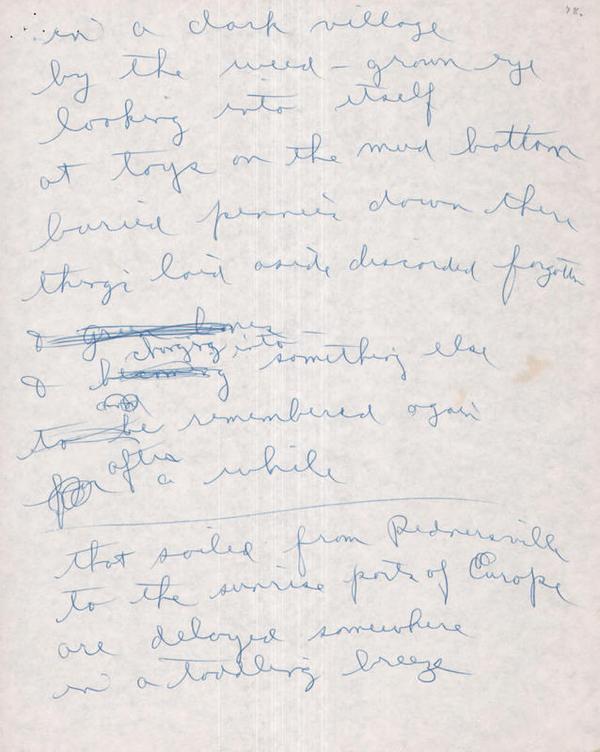 in a dark village
by the weed-grown eye
looking into itself
at toys on the mud bottom
buried pennies down there
things laid aside discarded forgotten
& green bones
changing into
& becoming something else
and
to be remembered again
after
for a while
that sailed from Rednersville
to the sunrise ports of Europe
are delayed somewhere
in a toddling breeze